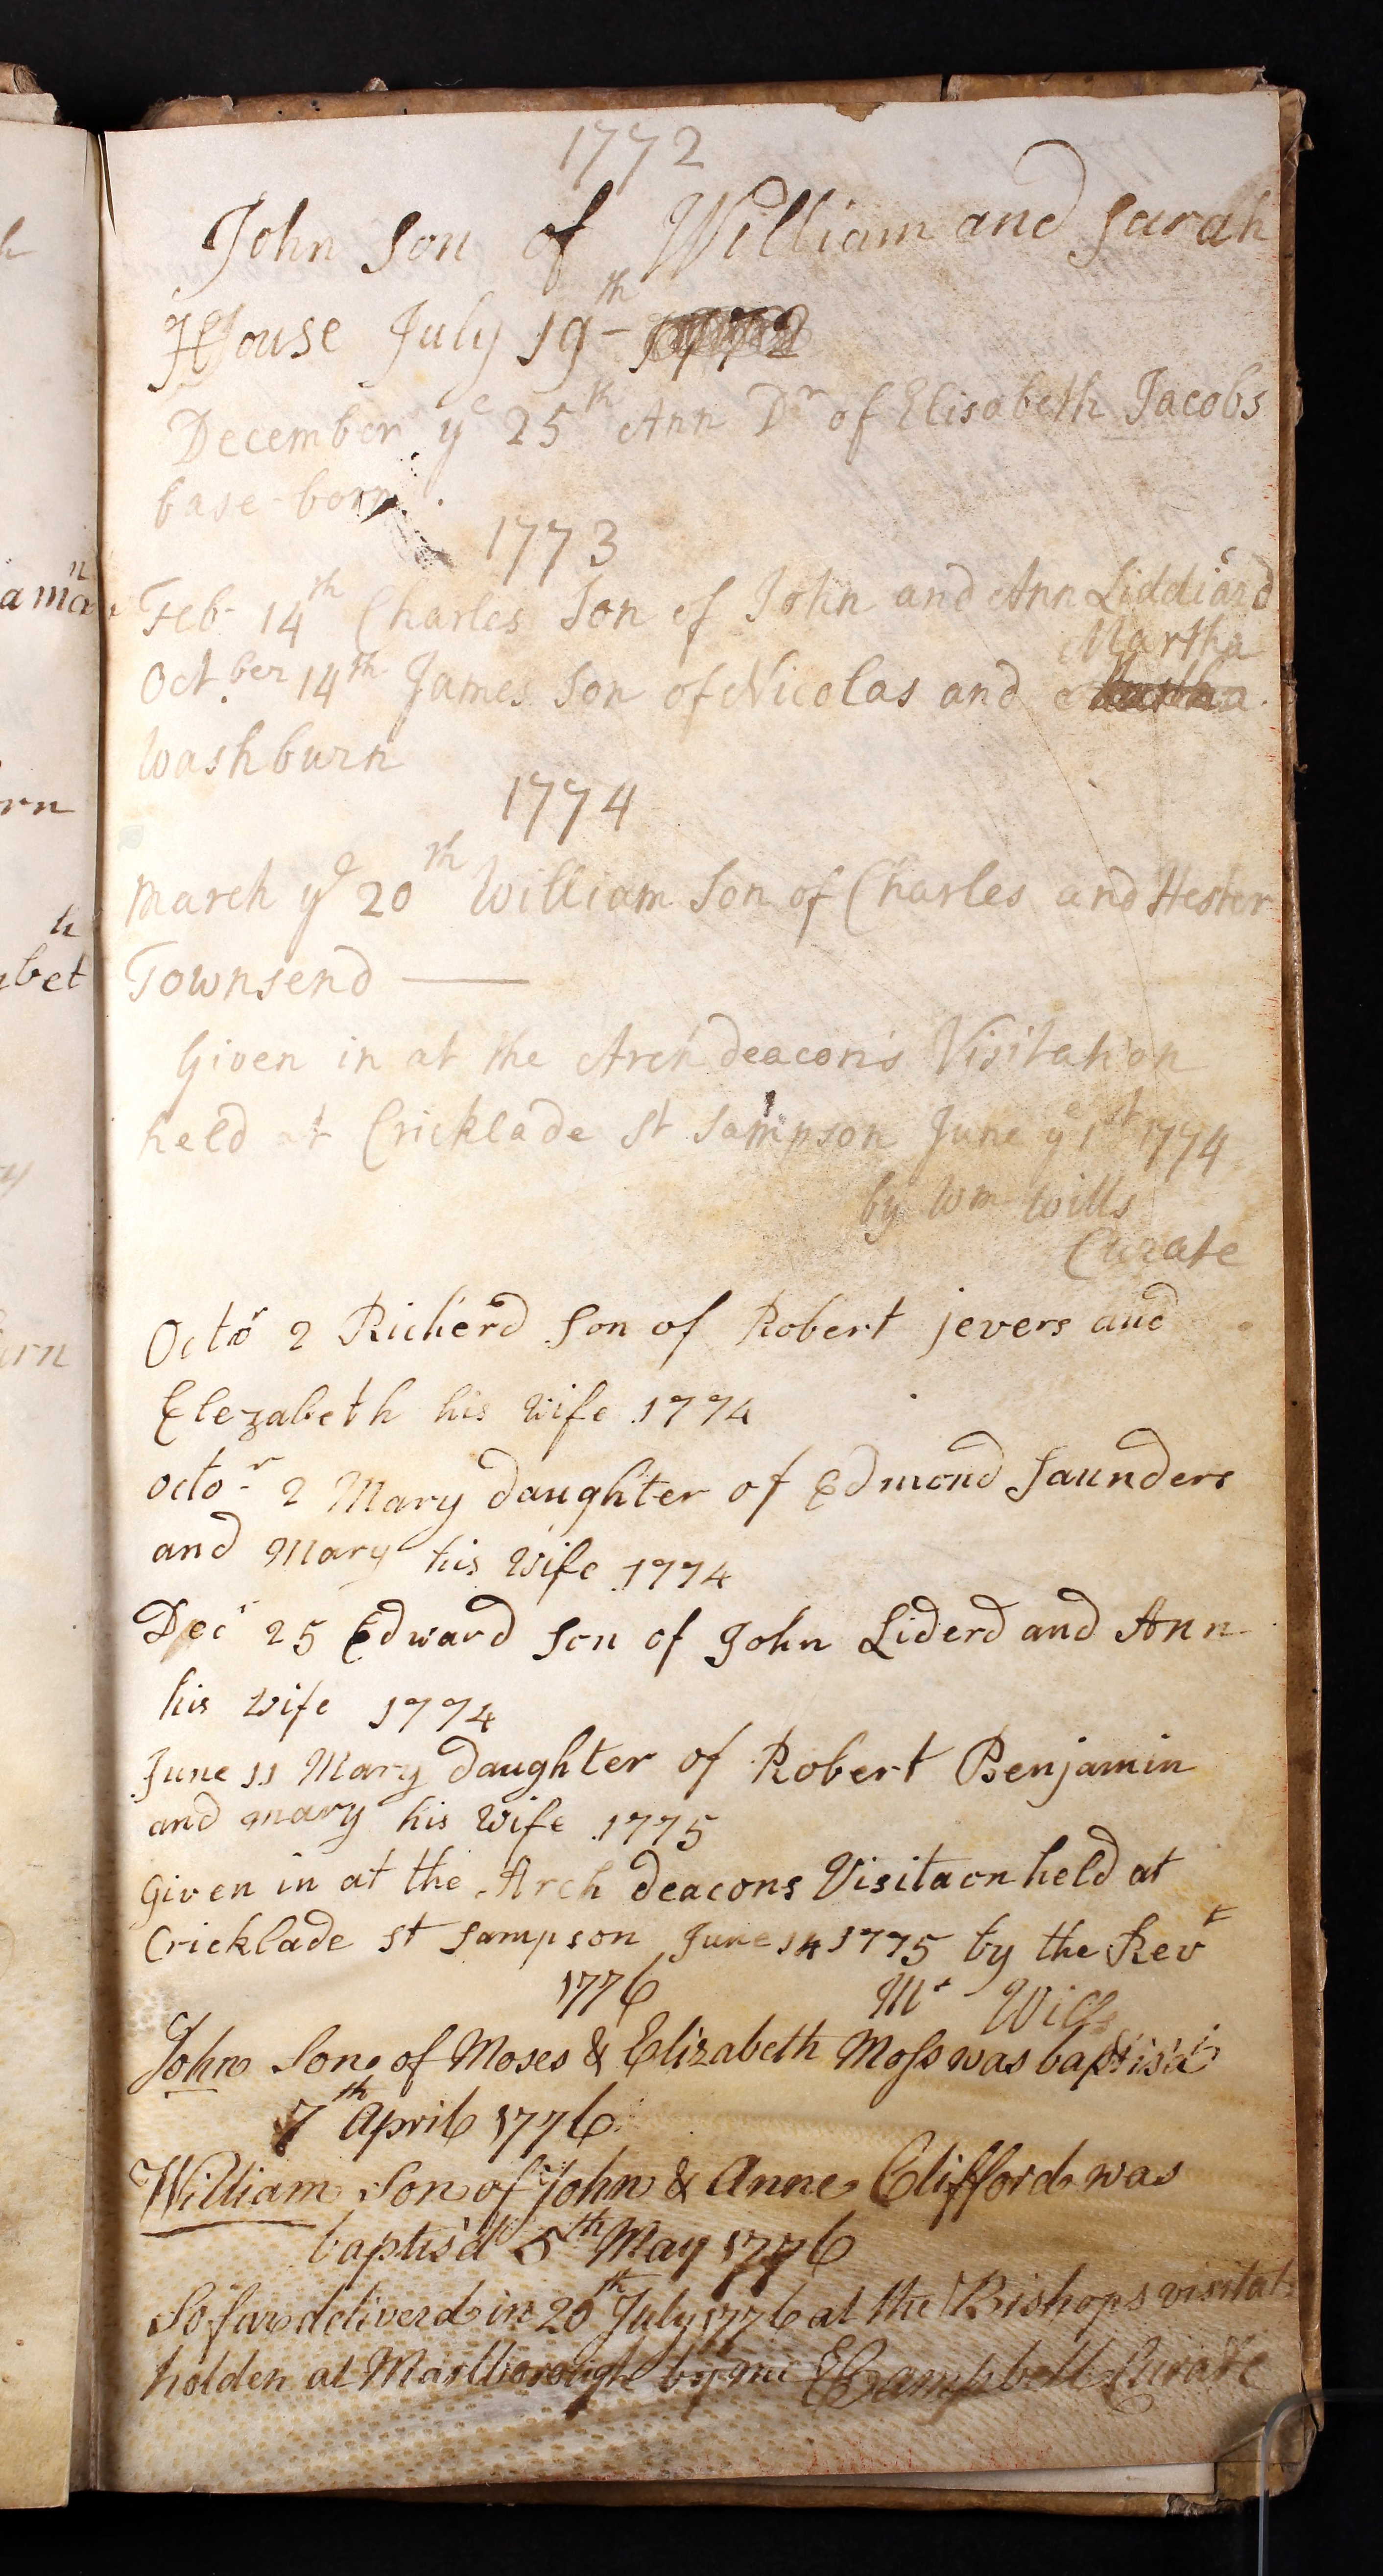 1772
John Son of William and Sarah
House July 19th 1772
December ye 25th Ann Dr of Elisabeth Jacobs
base-born.
1773
Feb 14th Charles Son of John and Ann Liddiard
Martha
Octber 14th James Son of Nicolas and
Washburn
1774
March ye 20th William Son of Charles and Hester
Townsend
Given in at the Archdeacon's Visitation
held at Cricklade St Sampson June ye 1st 1774
by Wm Wills
Curate
Octor 2 Richerd Son of Robert jevers and
Elezabeth his Wife 1774
octor 2 Mary daughter of Edmond Saunders
and Mary his Wife 1774
Decr 25 Edward Son of John Liderd and Ann
his Wife 1774
June 11 Mary daughter of Robert Benjamin
and mary his Wife 1775
Given in at the Arch deacons Visitaon held at
Cricklade St Sampson June 14 1775 by the Revt
1776 Mr Wills
John Son of Moses & Elizabeth Moss was baptis'd
7th April 1776.
William Son of John & Anne Clifford was
baptis'd 5th May 1776
So far deliverd in 20th July 1776 at the Bishops visitat
holden at Marlborough by me E Campbell Curate